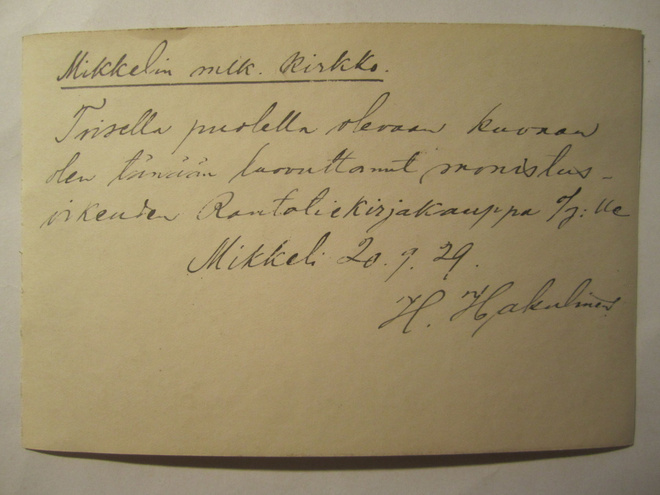 Mikkelin mlk. kirkko.
Toisella puolella olevaan kuvaan
olen tänään luovuttanut monistus-
oikeuden Rautatiekirjakauppa O/y:lle
Mikkeli 20.9.29.
H. Hakulinen